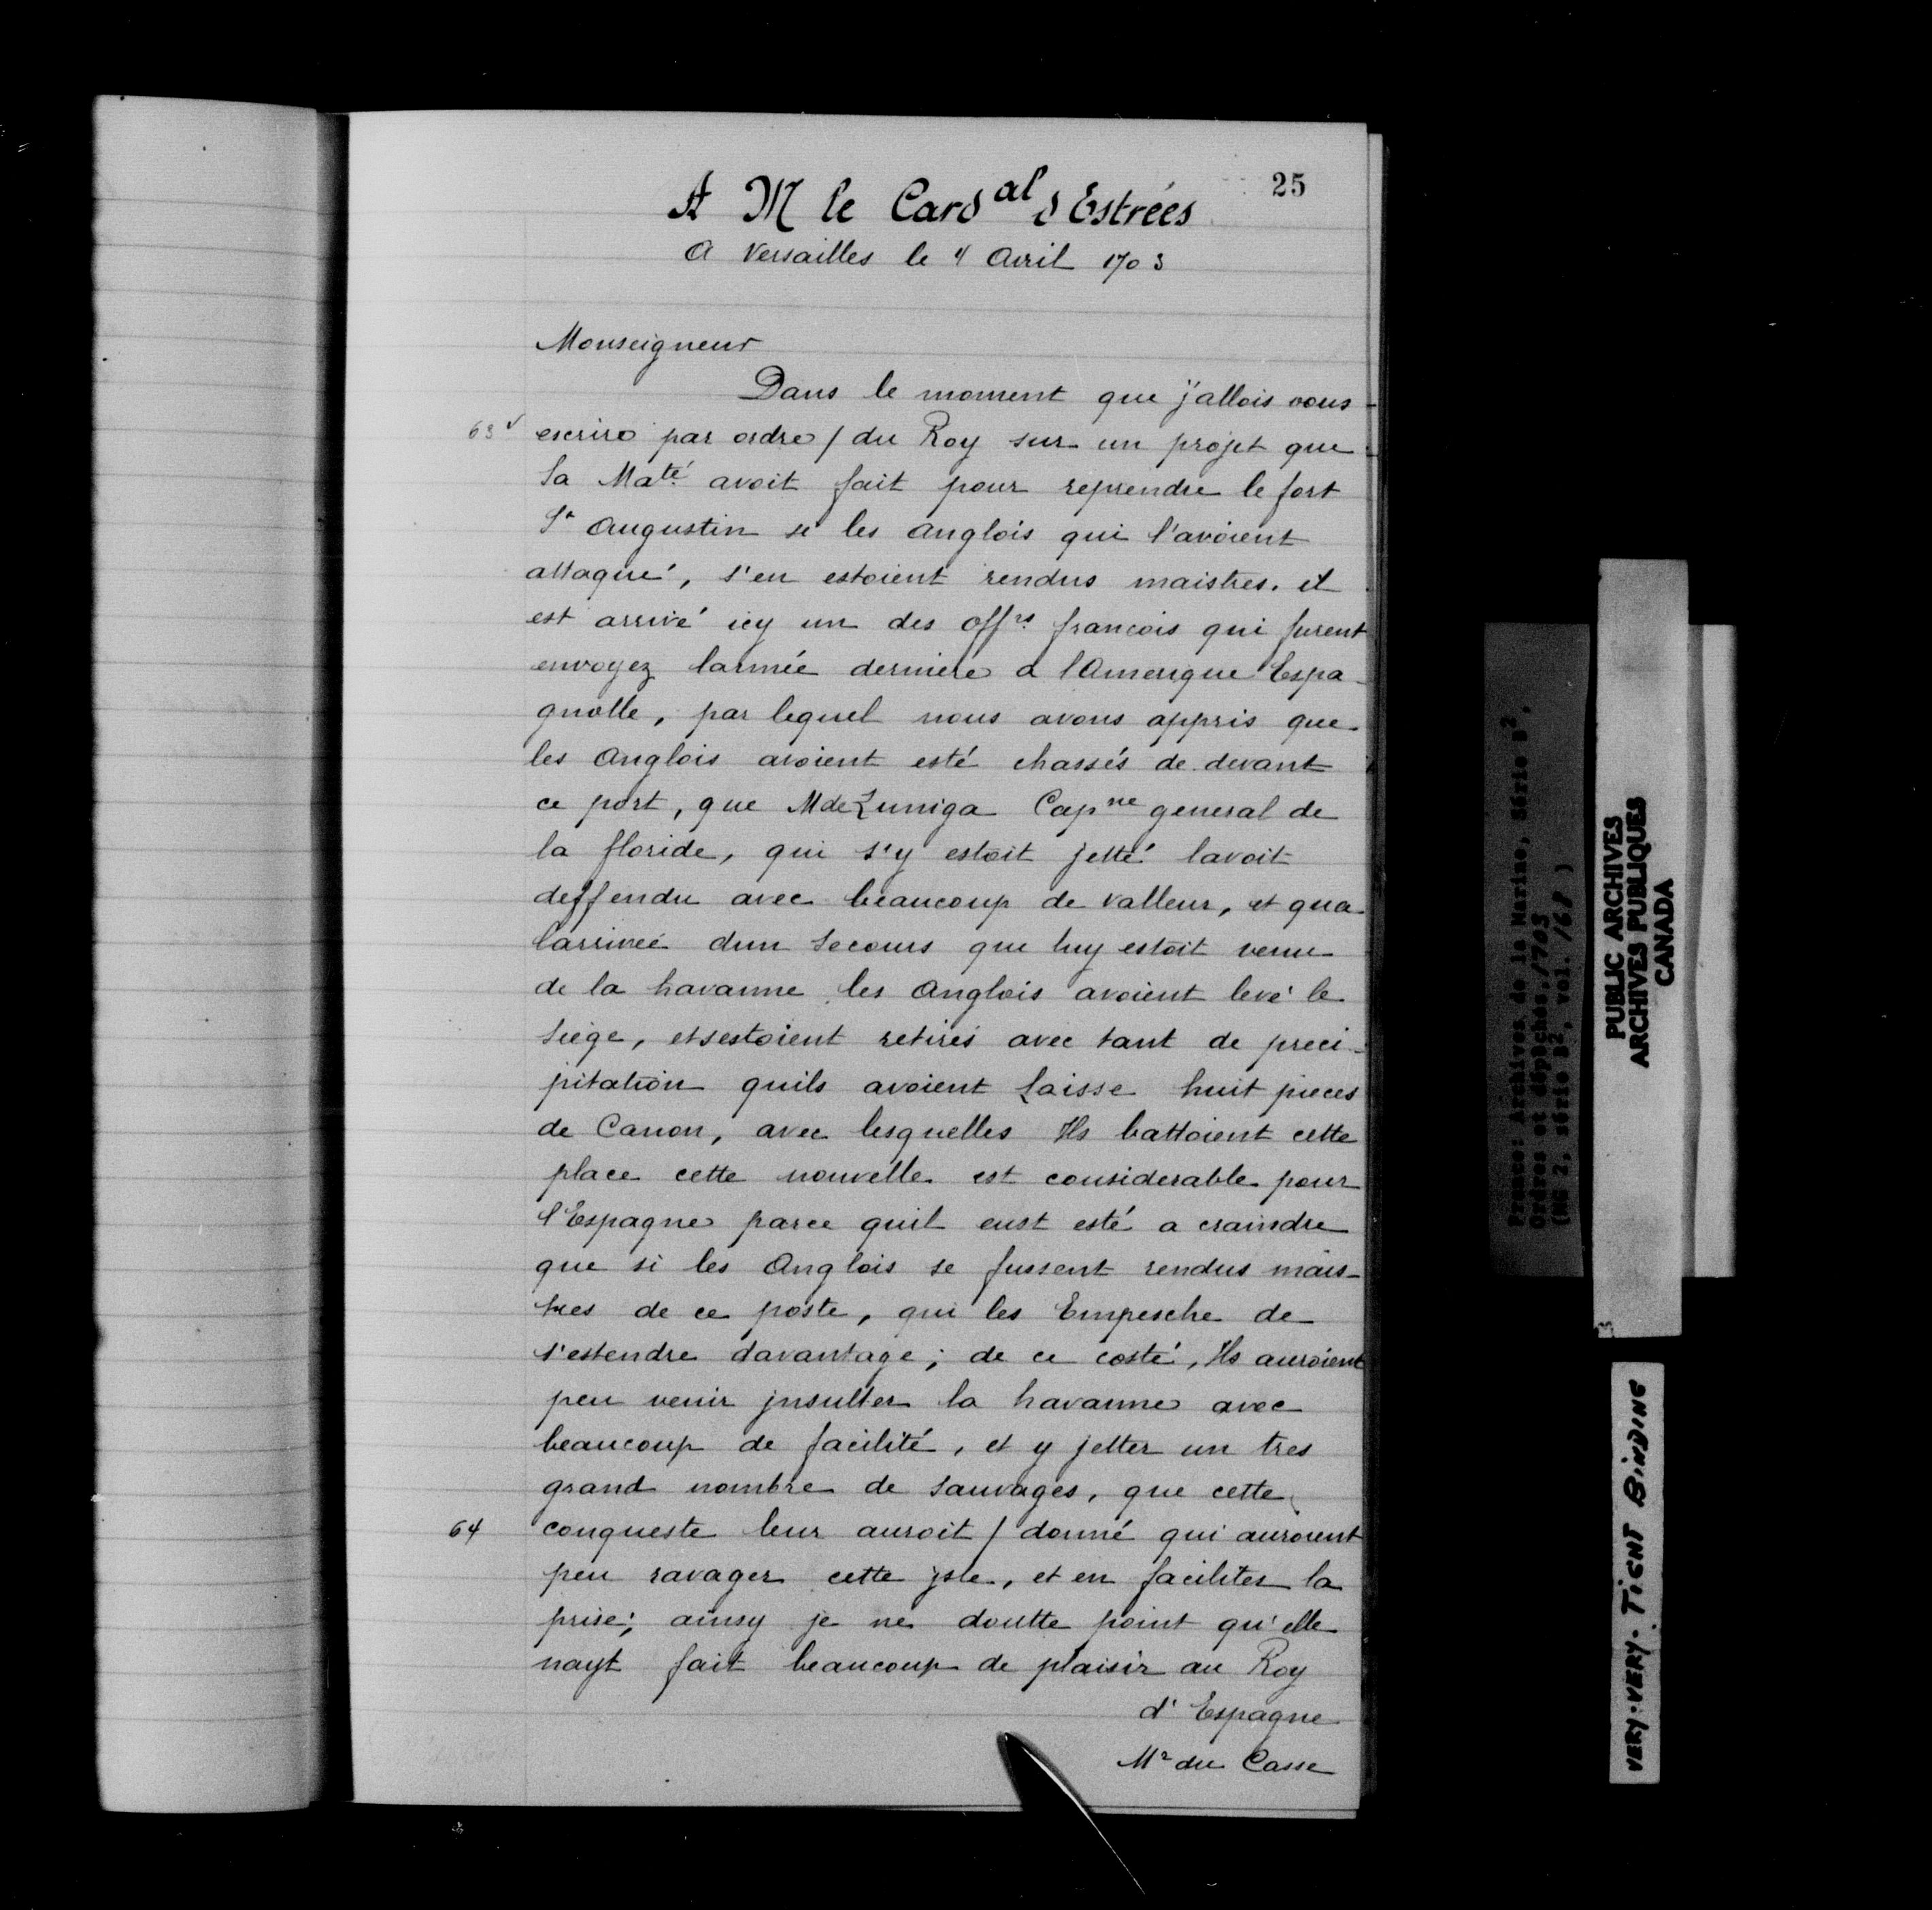 25
A M le Card^al d Estrées
A Versailles le 4 Avril 1703
Monseigneur
Dans le moment que j'allois vous
63v escrire par ordre / du Roy sur un projet que
Sa Ma^té avoit fait pour reprendre le fort
S^t Augustin si les Anglois qui l'avoient
attaqué, s'en estoient rendus maistres. il
est arrivé icy un des off^rs francois qui furent
envoyez lannée derniere a l'Amerique Espa-
gnolle, par lequel nous avons appris que
les Anglois avoient esté chassés de devant
ce port, que M de Zuniga Cap^ne general de
la floride, qui s'y estoit jetté lavoit
deffendu avec beaucoup de valleur, et qua
larrivée dun Secours que luy estoit venu
de la havanne les Anglois avoient levé le
Siège, et sestoient retirés avec tant de preci-
pitation quils avoient laisse huit pieces
de Canon, avec lesquelles Ils battoient cette
place cette nouvelle est considerable pour
l'Espagne parce quil eust esté a craindre
que si les Anglois se fussent rendus mais-
tres de ce poste, qui les Empesche de
s'estendre davantage; de ce costé, Ils auroient
peu venir jnsulter la havanne avec
beaucoup de facilité, et y jetter un tres
grand nombre de Sauvages, que cette
64 conqueste leur auroit / donné qui auroient
peu ravager cette jsle, et en faciliter la
prise; ainsy je ne doutte point qu'elle
nayt fait beaucoup de plaisir au Roy
d'Espagne
M^r du Casse
France: Archives de la Marine, Série B²,
Ordres et dépêches, 1703
(MG 2, série B², vol. 168 )
PUBLIC ARCHIVES
ARCHIVES PUBLIQUES
CANADA
VERY-VERY-TIGHT BINDING